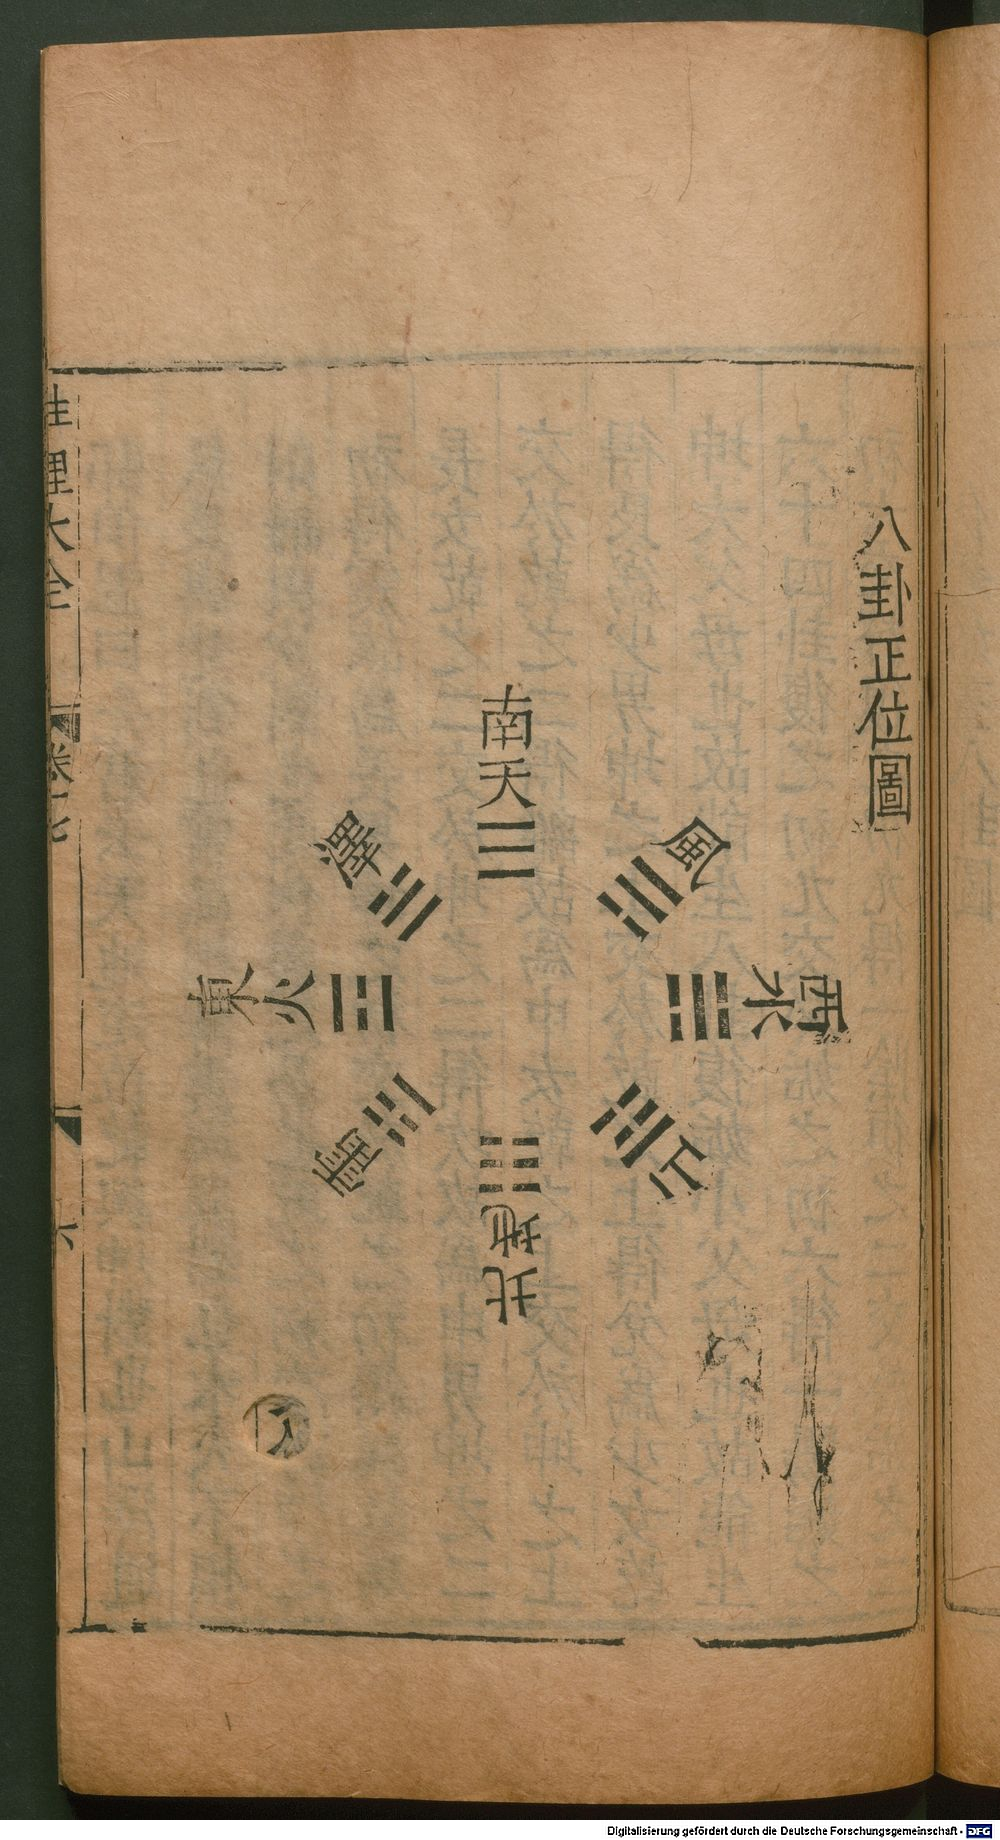 八卦正位圖
南天
風
西水
山
北地
雷
東火
澤
性理大全
卷七
六
Digitalisierung gefördert durch die Deutsche Forschungsgemeinschaft - DFG